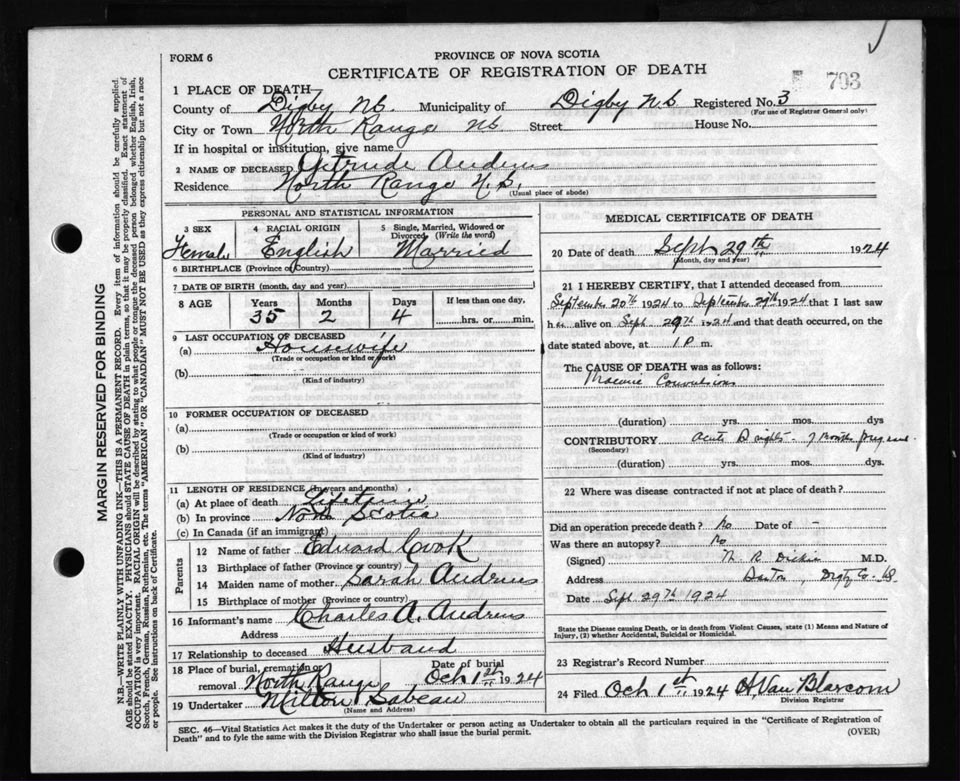 FORM 6
PROVINCE OF NOVA SCOTIA
CERTIFICATE OF REGISTRATION OF DEATH
703
1 PLACE OF DEATH
County of Digby N.S. Municipality of Digby N.S. Registered No. 3
(For use of Registrar General only)
City or Town North Range NS Street House No.
If in hospital or institution, give name
2 NAME OF DECEASED Getrude Andrews
Residence North Range N.S.
(Usual place of abode)
PERSONAL AND STATISTICAL INFORMATION
3 SEX 4 RACIAL ORIGIN 5 Single, Married, Widowed or Divorced, (Write the word)
Female English Married
6 BIRTHPLACE (Province or Country)
7 DATE OF BIRTH (month, day and year)
8 AGE Years Months Days If less than one day,
35 2 4 hrs. or min.
9 LAST OCCUPATION OF DECEASED
(a) Housewife
(Trade or occupation or kind of work)
(b)
(Kind of industry)
10 FORMER OCCUPATION OF DECEASED
(a)
(Trade or occupation or kind of work)
(b)
(Kind of industry)
11 LENGTH OF RESIDENCE (In years and months)
(a) At place of death Lifetime
(b) In province Nova Scotia
(c) In Canada (if an immigrant)
Parents
12 Name of father Edward Cook
13 Birthplace of father (Province or country)
14 Maiden name of mother Sarah Andrews
15 Birthplace of mother (Province or country)
16 Informant's name Charles A. Andrews
Address
17 Relationship to deceased Husband
18 Place of burial, cremation or removal North Range Date of burial Oct 1st 1924
19 Undertaker Milton Sabean
(Name and Address)
MEDICAL CERTIFICATE OF DEATH
20 Date of death Sept 29th 1924
(Month, day and year)
21 I HEREBY CERTIFY, that I attended deceased from
September 20th 1924 to September 29th 1924 that I last saw
her alive on Sept 29th 1924 and that death occurred, on the
date stated above, at 1 P m.
The CAUSE OF DEATH was as follows:
Convulsions
(duration) yrs. mos. dys
CONTRIBUTORY Acute 7 months
(Secondary)
(duration) yrs. mos. dys.
22 Where was disease contracted if not at place of death?
Did an operation precede death? No Date of -
Was there an autopsy? No
(Signed) M.D.
Address Digby Co. NS
Date Sept 29th 1924
State the Disease causing Death, or in death from Violent Causes, state (1) Means and Nature of
Injury, (2) whether Accidental, Suicidal or Homicidal.
23 Registrar's Record Number
24 Filed Oct 1st 1924 H. Van Blarcom
Division Registrar
SEC. 46—Vital Statistics Act makes it the duty of the Undertaker or person acting as Undertaker to obtain all the particulars required in the "Certificate of Registration of
Death" and to fyle the same with the Division Registrar who shall issue the burial permit.
(OVER)
MARGIN RESERVED FOR BINDING
N.B.—WRITE PLAINLY WITH UNFADING INK—THIS IS A PERMANENT RECORD. Every item of information should be carefully supplied.
AGE should be stated EXACTLY. PHYSICIANS should STATE CAUSE OF DEATH in plain terms, so that it may be properly classified. Exact statement of
OCCUPATION is very important. RACIAL ORIGIN will be described by stating to what people or tongue the deceased person belonged whether English, Irish,
Scotch, French, German, Russian, Ruthenian, etc. The terms "AMERICAN" OR "CANADIAN" MUST NOT BE USED as they express citizenship but not a race
or people. See instructions on back of Certificate.